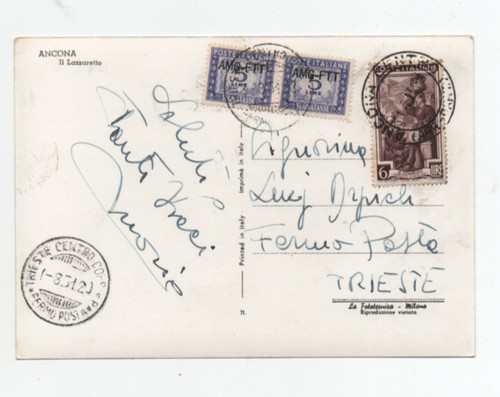 ANCONA
Il Lazzaretto
POSTE ITALIANE
AMG-FTT
5
LIRE
SEGNATASSE
POSTE ITALIANE
AMG-FTT
5
LIRE
SEGNATASSE
6
Saluti e
Tanti baci
Signorina
Luigi
Fermo Posta
TRIESTE
TRIESTE CENTRO CORR.
1-8.51.20
FERMO POSTA
Printed in Italy - Imprimé en Italie
11.
La Fototecnica - Milano
Riproduzione vietata